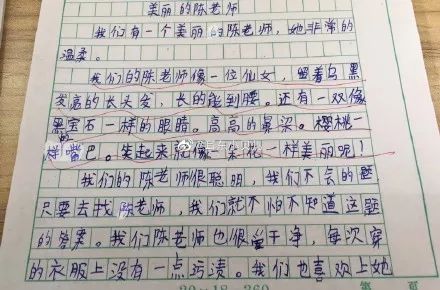 美丽的陈老师
我们有一个美丽的陈老师，她非常的
温柔。
我们的陈老师像一位仙女，留着乌黑
发亮的长头发，长的能到腰。还有一双像
黑宝石一样的眼睛。高高的鼻梁。樱桃一
样的嘴巴。笑起来就像一朵花一样美丽呢！
我们的陈老师很聪明，我们不会的题
只要去找陈老师，我们就不怕不知道这题
的答案。我们陈老师也很爱干净，每次穿
的衣服上没有一点污渍。我们也喜欢上她
20×18=360
页